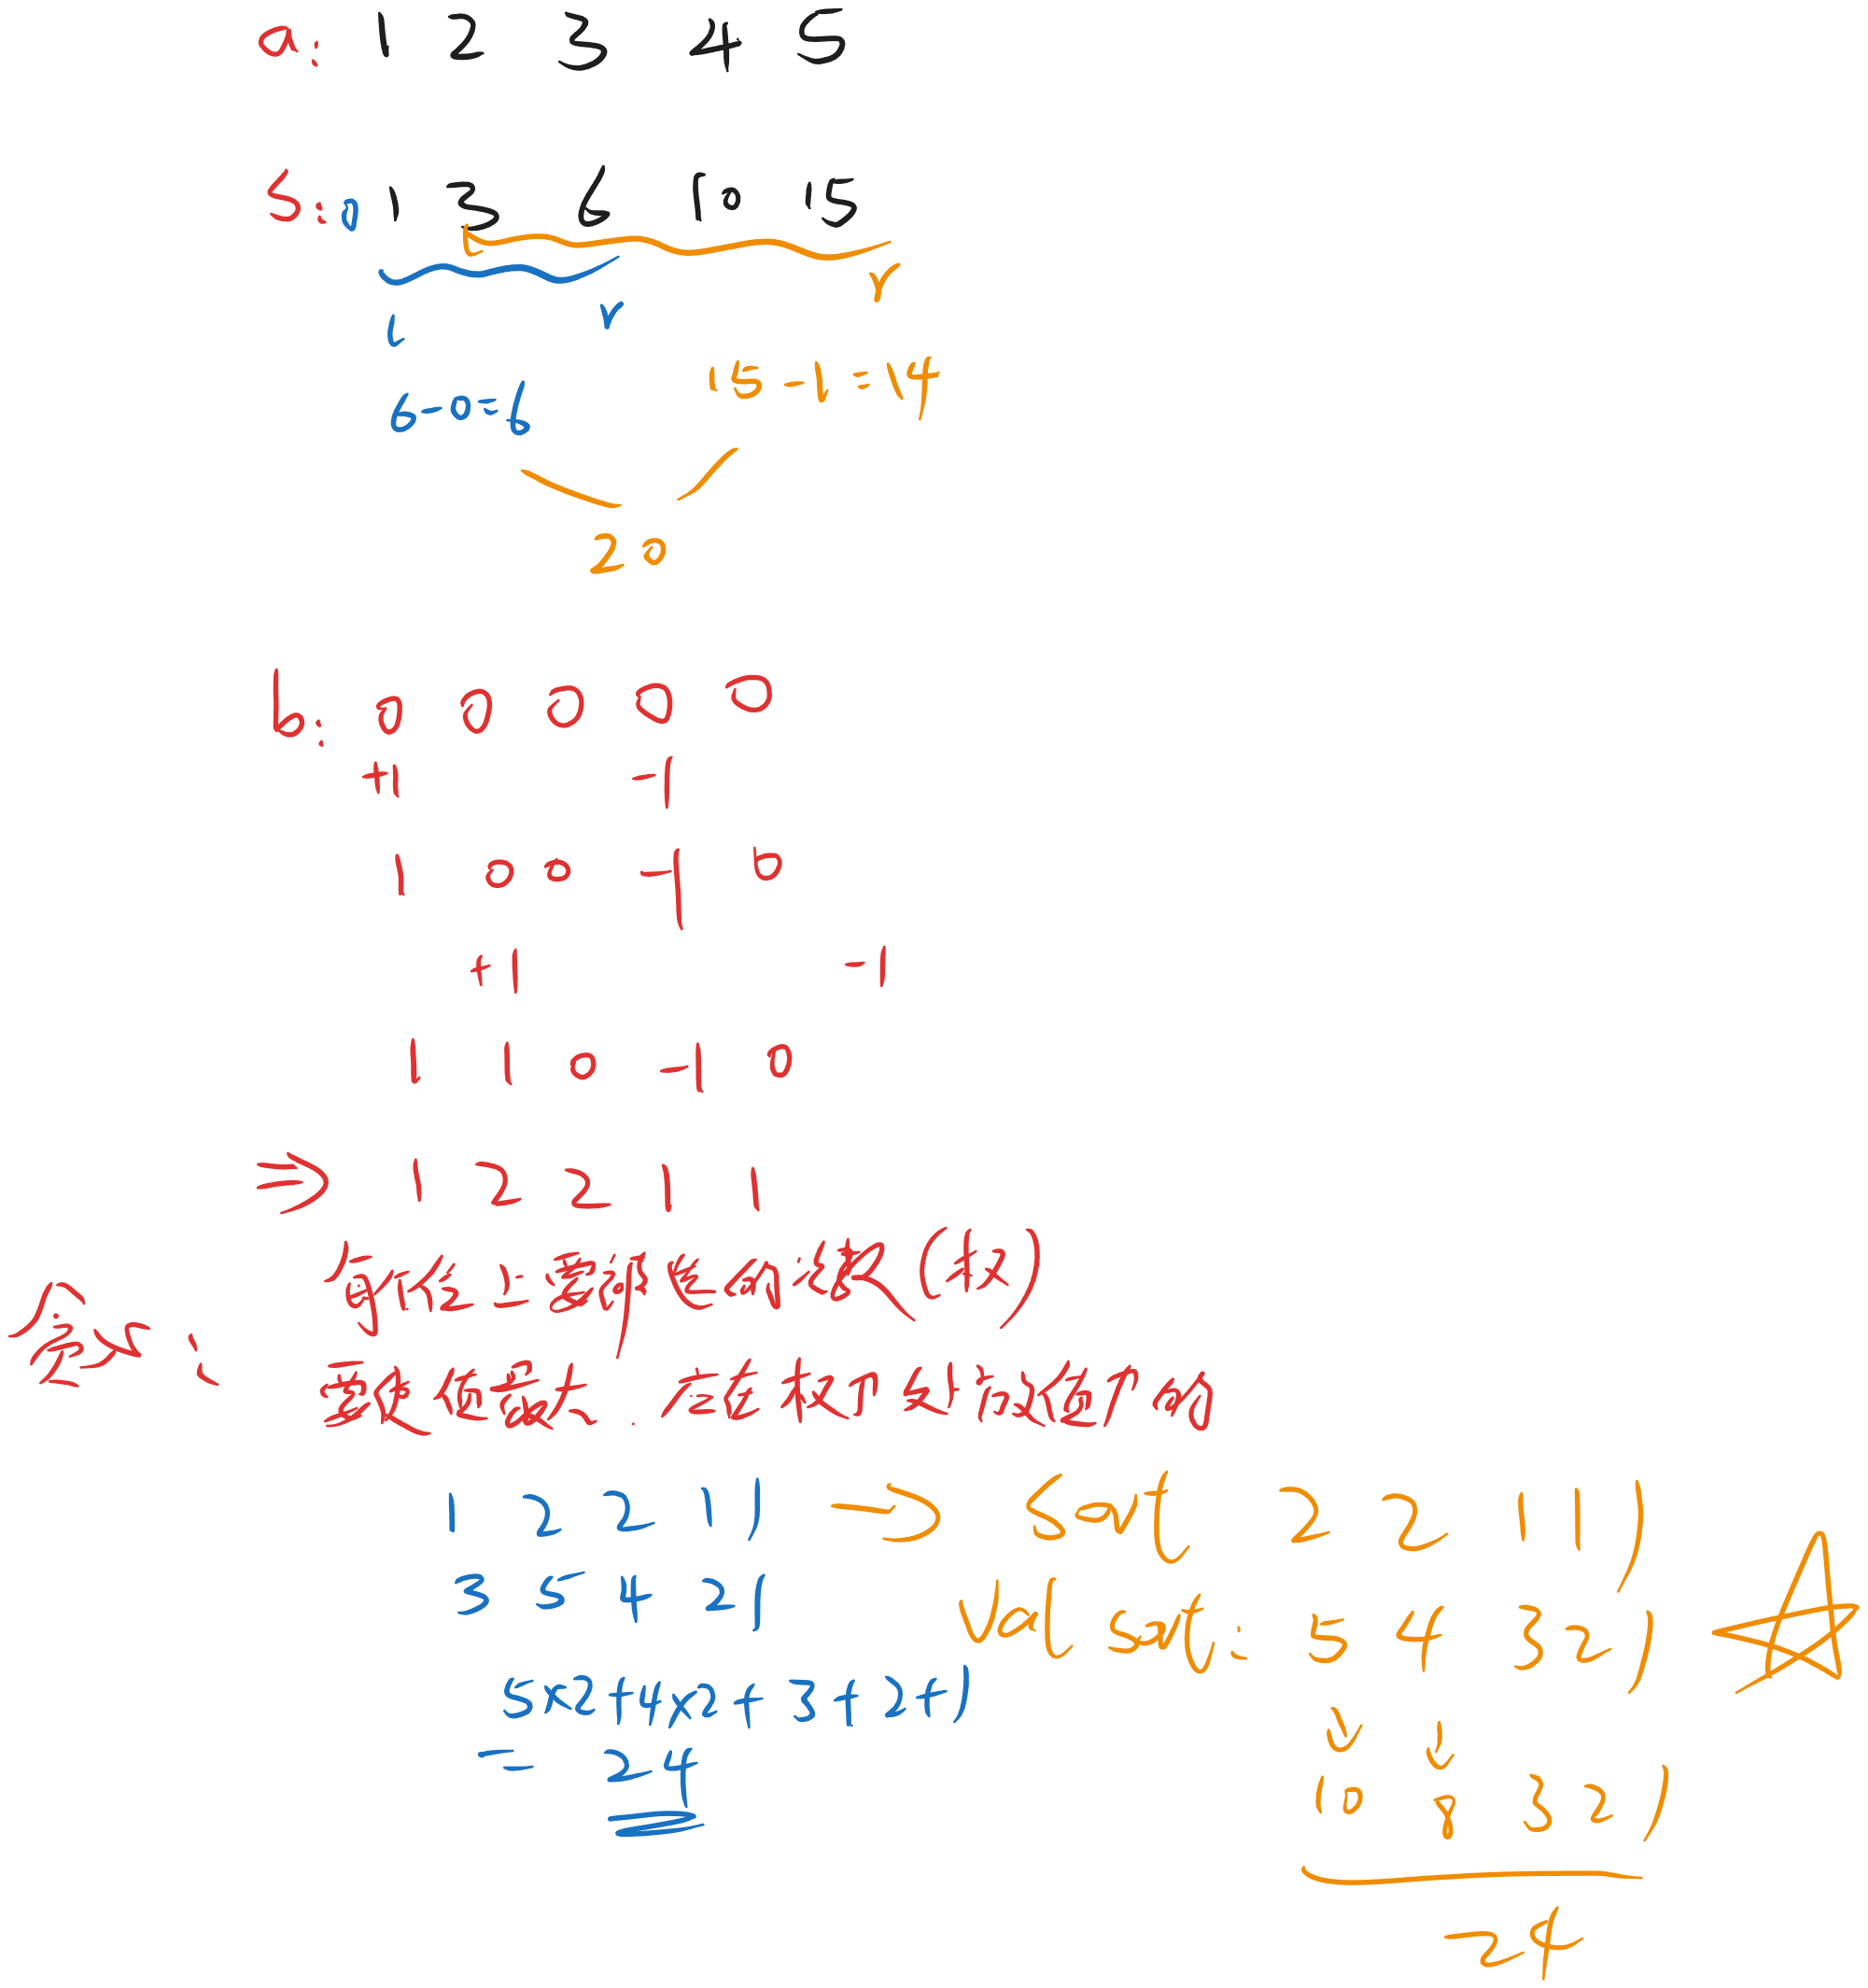 a: 1 2 3 4 5
S: 0 1 3 6 10 15
r
l r
15-1=14
6-0=6
20
b: 0 0 0 0 0
+1 -1
1 0 0 -1 0
+1 -1
1 1 0 -1 0
⇒ 1 2 2 1 1
每个位上要被选的次数(权)
贪心:
要使值最大.应选权乘最高次数大的
1 2 2 1 1 → sort 2 2 1 1 1
3 5 4 2 1 val sort: 5 4 3 2 1
5×2+4×2+3+2+1
= 24
10 8 3 2 1
24